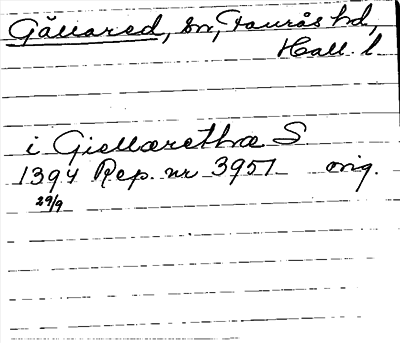 Gällared, sn, Faurås hd,
Hall. l.
i Giellærethæ S.
1394 Rep. nr 3951 orig.
29/9